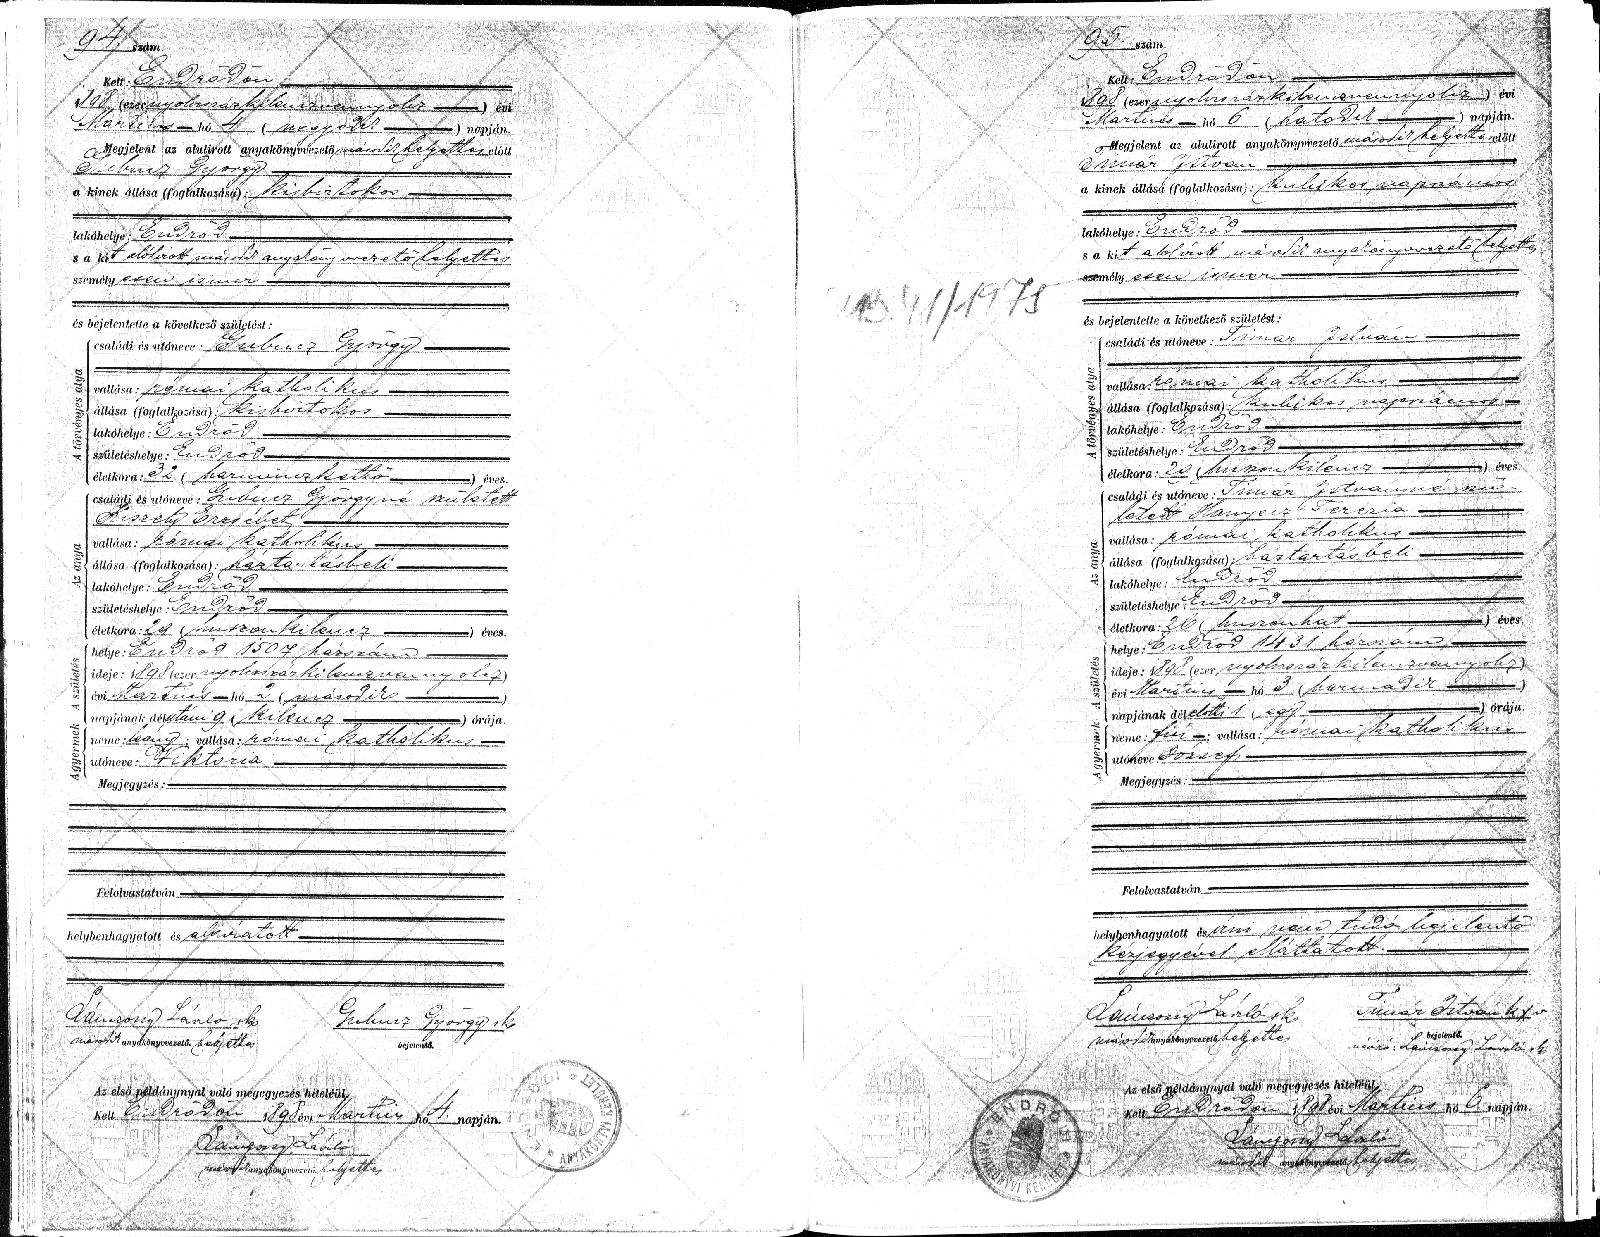 94 szám.
Kelt: Endrődön
1898 (ezer nyolczszázkilenczvennyolcz) évi
Martius hó 4 (negyedik) napján.
Megjelent az alulirott anyakönyvvezető, második helyettes előtt
Gubucz György
a kinek állása (foglalkozása): kisbirtokos
lakóhelye: Endrőd
s a kit alólirott második anyakönyvvezető helyettes
személyesen ismer
és bejelentette a következő születést:
A törvényes atya
családi és utóneve: Gubucz György
vallása: római katholikus
állása (foglalkozása): kisbirtokos
lakóhelye: Endrőd
születéshelye: Endrőd
életkora: 32 (harminczkettő) éves.
Az anya
családi és utóneve: Gubucz Györgyné született
Erzsébet
vallása: római katholikus
állása (foglalkozása): háztartásbeli
lakóhelye: Endrőd
születéshelye: Endrőd
életkora: 29 (huszonkilencz) éves.
A születés
helye: Endrőd 1507 házszám
ideje: 1898 (ezer nyolczszázkilenczvennyolcz)
évi Martius hó 2 (második)
napjának délutáni 9 (kilencz) órája.
A gyermek
neme: leány; vallása: római katholikus
utóneve: Viktoria
Megjegyzés:
Felolvastatván
helybenhagyatott és aláíratott
László sk
második anyakönyvvezető helyettes
Gubucz György sk
bejelentő.
Az első példánynyal való megegyezés hiteléül.
Kelt Endrődön 1898 évi Martius hó 4. napján.
László
második anyakönyvvezető helyettes
41/1973
95 szám.
Kelt: Endrődön
1898 (ezer nyolczszázkilenczvennyolcz) évi
Martius hó 6 (hatodik) napján.
Megjelent az alulirott anyakönyvvezető második helyettes előtt
Timár István
a kinek állása (foglalkozása): kubikos napszámos
lakóhelye: Endrőd
s a kit alólirott második anyakönyvvezető helyettes
személyesen ismer
és bejelentette a következő születést:
A törvényes atya
családi és utóneve: Timár István
vallása: római katholikus
állása (foglalkozása): kubikos napszámos
lakóhelye: Endrőd
születéshelye: Endrőd
életkora: 29 (huszonkilencz) éves.
Az anya
családi és utóneve: Timár Istvánné szü-
letett Hanyecz Terezia
vallása: római katholikus
állása (foglalkozása): háztartásbeli
lakóhelye: Endrőd
születéshelye: Endrőd
életkora: 26 (huszonhat) éves.
A születés
helye: Endrőd 1431 házszám
ideje: 1898 (ezer nyolczszázkilenczvennyolcz)
évi Martius hó 3 (harmadik)
napjának délelőtti 1 (egy) órája.
A gyermek
neme: fiu; vallása: római katholikus
utóneve: József
Megjegyzés:
Felolvastatván
helybenhagyatott és írni nem tudó bejelentő
kézjegyével elláttatott.
László sk
második anyakönyvvezető helyettes
Timár István
bejelentő.
László sk
Az első példánynyal való megegyezés hiteléül.
Kelt Endrődön 1898 évi Martius hó 6 napján.
László
második anyakönyvvezető helyettes